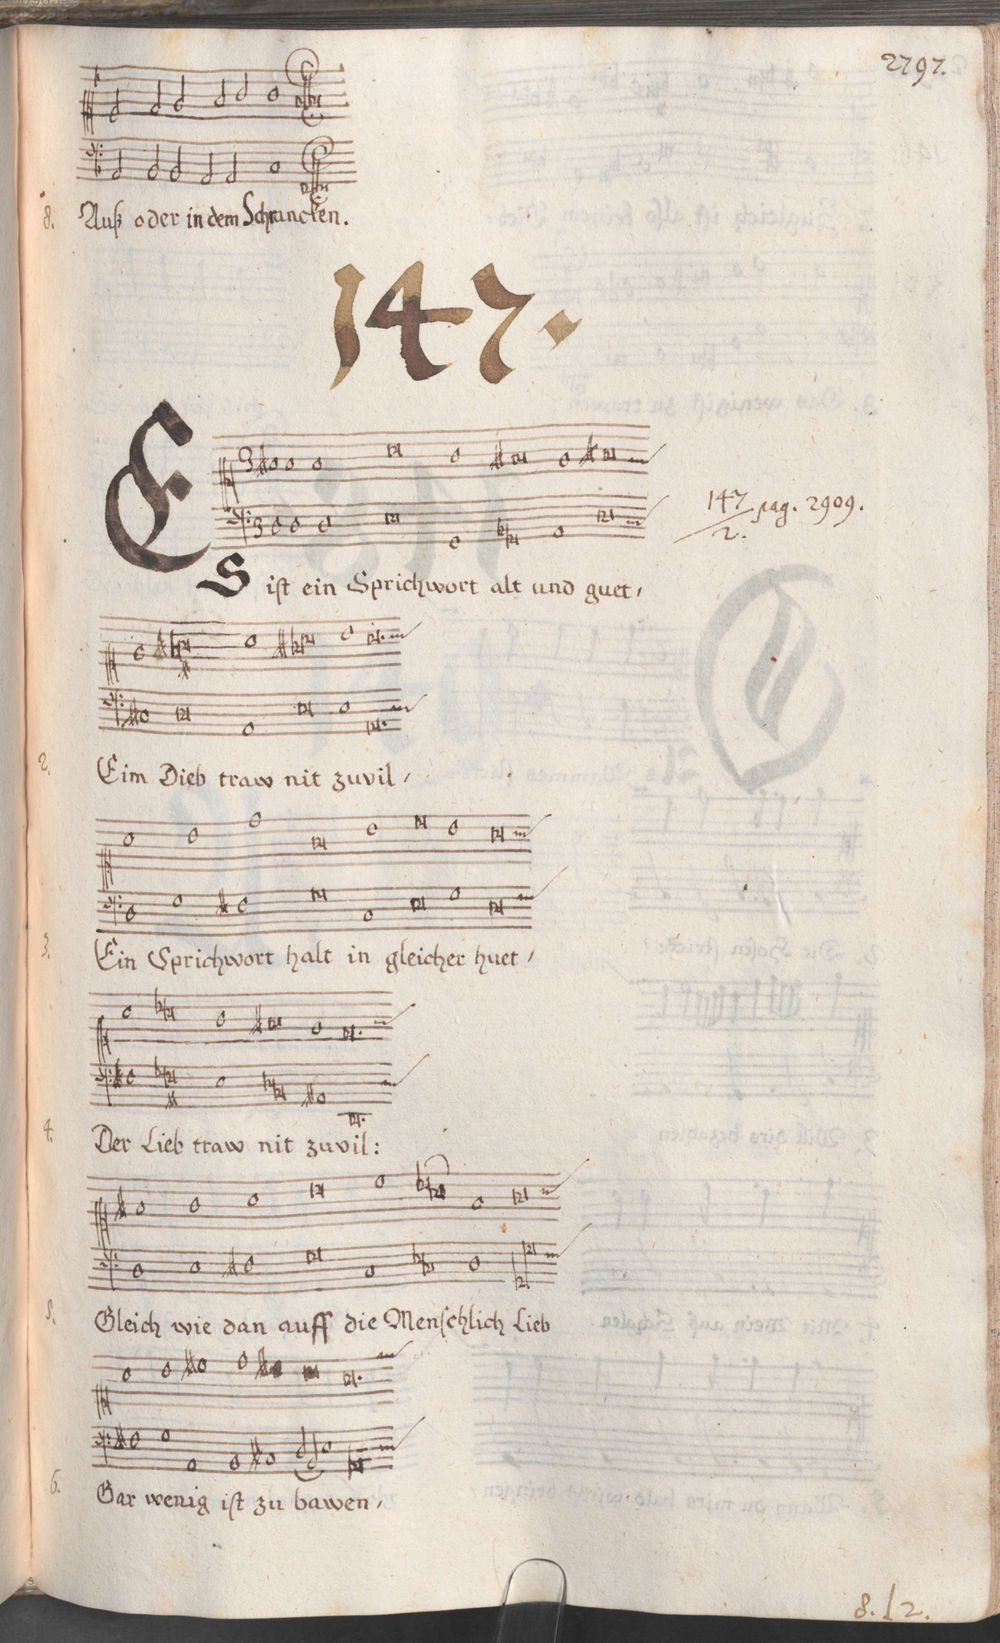 2797.
8. Auß oder in dem Schrancken.
147.
147 pag. 2909.
2.
Es ist ein Sprichwort alt und guet,
2. Eim Dieb traw nit zuvil,
3. Ein Sprichwort halt in gleicher huet,
4. Der Lieb traw nit zuvil:
5. Gleich wie dan auff die Menschlich Lieb
6. Gar wenig ist zu bawen,
8.12.